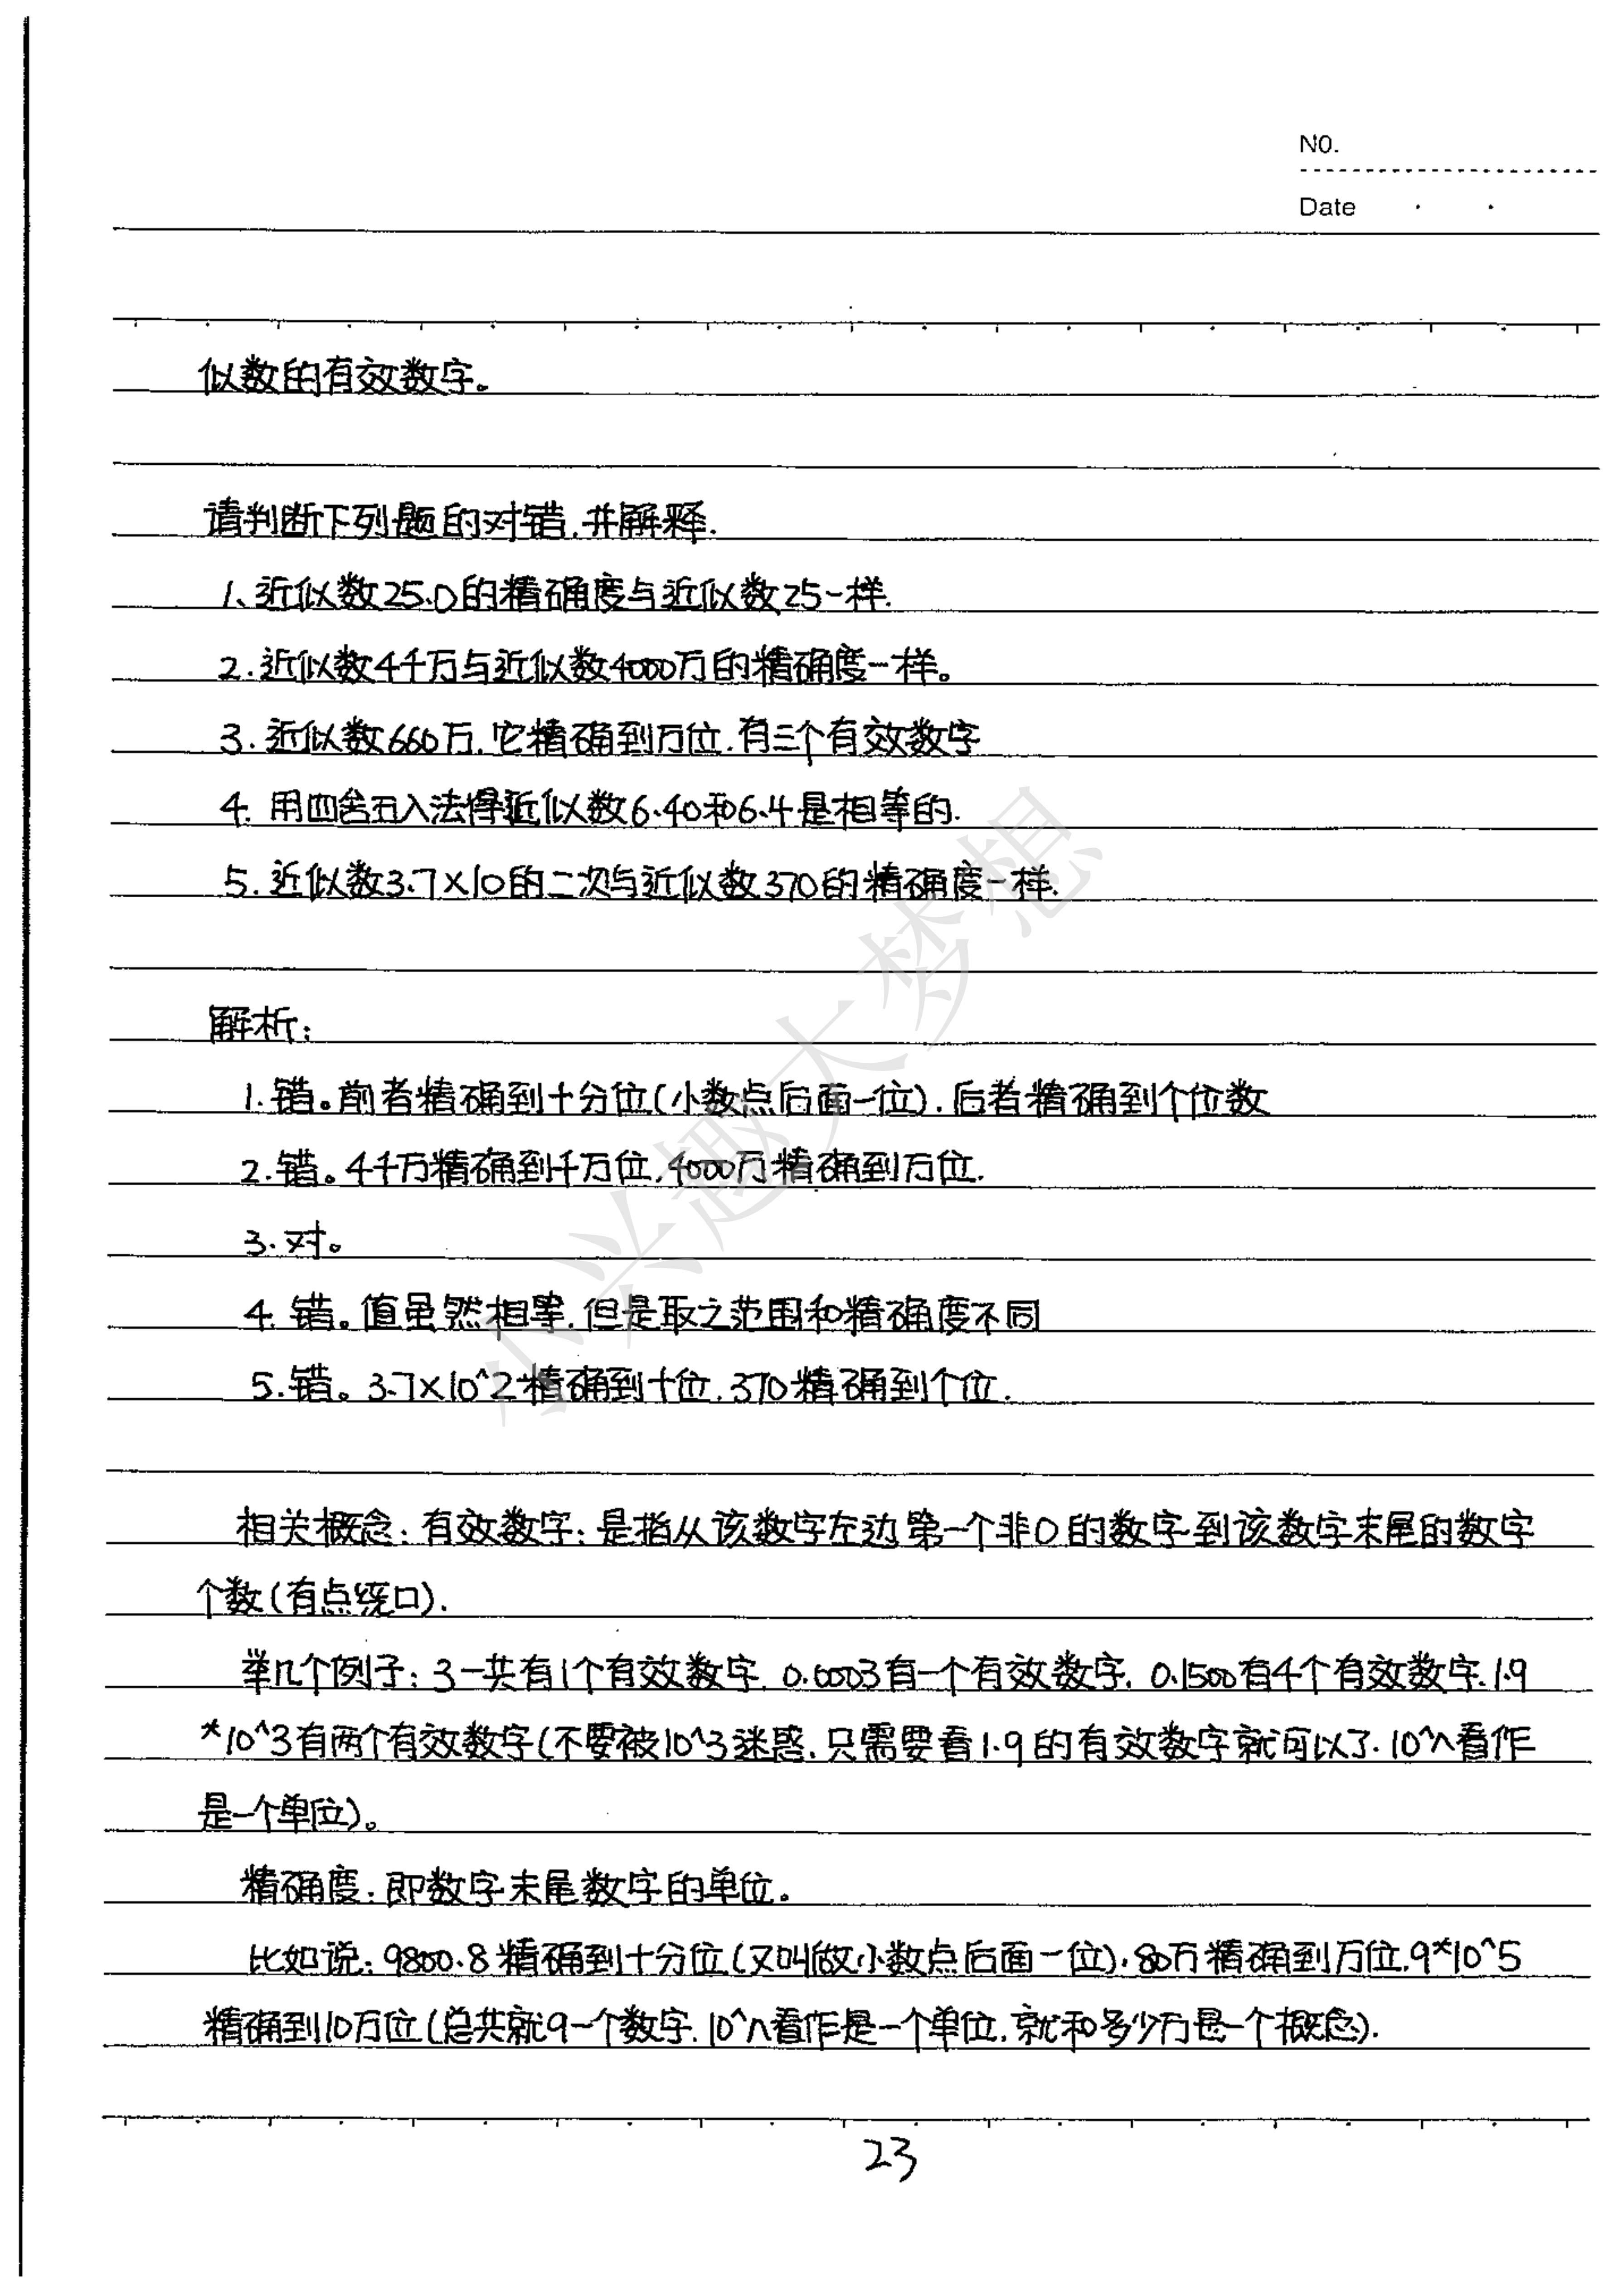 NO.
Date
似数的有效数字。
请判断下列题的对错,并解释.
1、近似数25.0的精确度与近似数25一样.
2.近似数4千万与近似数4000万的精确度一样。
3.近似数660万,它精确到万位,有三个有效数字
4.用四舍五入法得近似数6.40和6.4是相等的.
5.近似数3.7×10的二次与近似数370的精确度一样.
解析:
1.错。前者精确到十分位(小数点后面一位),后者精确到个位数
2.错。4千万精确到千万位,4000万精确到万位.
3.对。
4.错。值虽然相等,但是取之范围和精确度不同
5.错。3.7×10^2精确到十位,370精确到个位.
相关概念:有效数字:是指从该数字左边第一个非0的数字到该数字末尾的数字
个数(有点绕口).
举几个例子:3一共有1个有效数字,0.0003有一个有效数字,0.1500有4个有效数字,1.9
*10^3有两个有效数字(不要被10^3迷惑,只需要看1.9的有效数字就可以了,10^n看作
是一个单位)。
精确度:即数字末尾数字的单位。
比如说:9800.8精确到十分位(又叫做小数点后面一位),80万精确到万位,9*10^5
精确到10万位(总共就9一个数字,10^n看作是一个单位,就和多少万是一个概念).
23
小兴趣大梦想